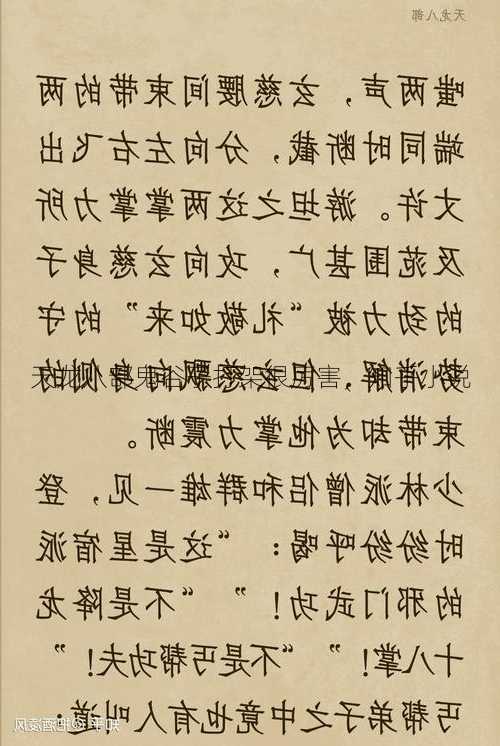 天龙八部
嗤两声，玄慈腰间束带的两
端同时断截，分向左右飞出
丈许。游坦之这两掌掌力所
及范围甚广，攻向玄慈身子
的劲力被“礼敬如来”的守
势消解，但玄慈飘向身侧的
束带却为他掌力震断。
少林派僧侣和群雄一见，登
时纷纷呼喝：“这是星宿派
的邪门武功！”“不是降龙
十八掌！”“不是丐帮功夫！”
丐帮弟子之中竟也有人叫道：
知乎 @把酒凌风